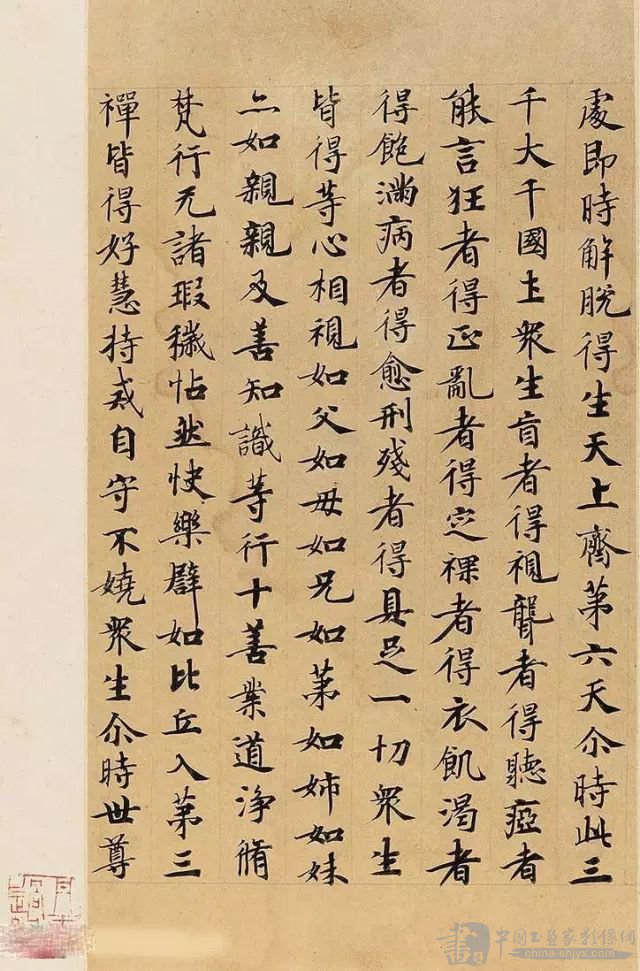 處即時解脫得生天上齊第六天尒時此三
千大千國土衆生盲者得視聾者得聽瘂者
能言狂者得正亂者得定裸者得衣飢渴者
得飽滿病者得愈刑殘者得具足一切衆生
皆得等心相視如父如母如兄如弟如姉如妹
亦如親親及善知識等行十善業道淨脩
梵行无諸瑕穢怗然快樂辟如比丘入第三
禪皆得好慧持戒自守不嬈衆生尒時世尊
中国书画家影像網
china-shjyx.com